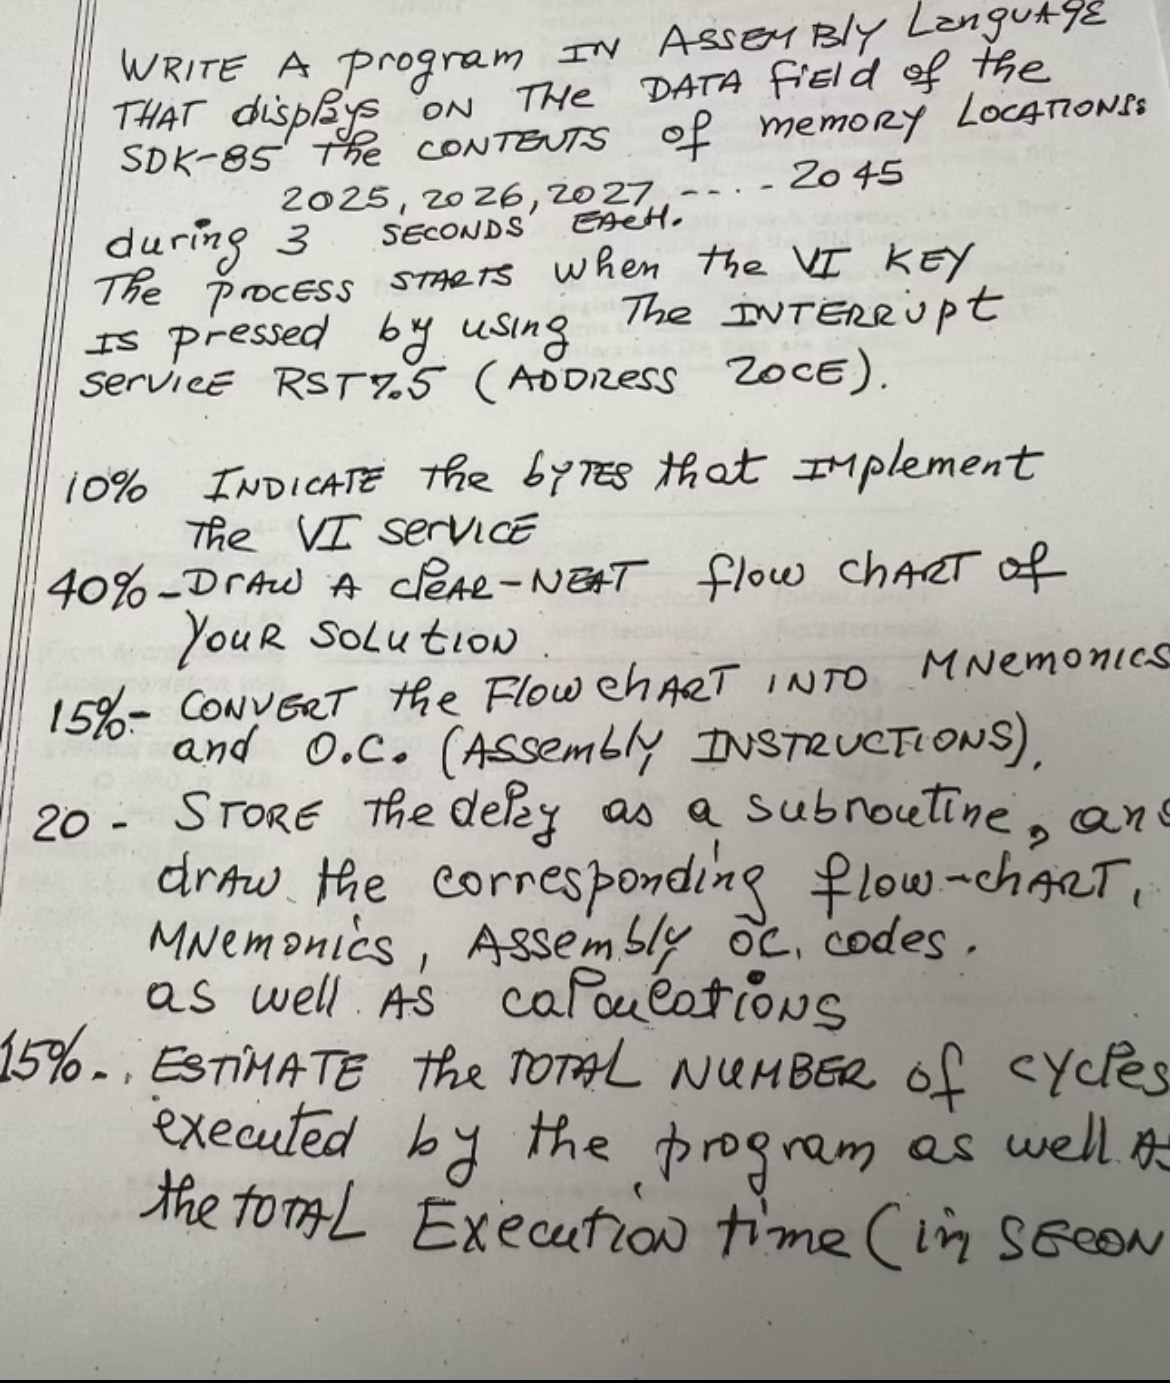 WRITE A program IN ASSEMBLY LANGUAGE
THAT displays ON THE DATA field of the
SDK-85 The CONTENTS of memory LOCATIONS:
2025, 2026, 2027, ---- 2045
during 3 SECONDS EACH.
The PROCESS STARTS when the VI KEY
IS pressed by using The INTERRUpt
servICE RST 7.5 (ADDRESS 20CE).
10% INDICATE the byTES that IMplement
The VI serVICE
40% - DrAW A clEAR-NEAT flow CHART of
YOUR SOLUTION.
15% - CONVERT the Flow chART INTO MNemonics
and O.C. (ASSembly INSTRUCTIONS).
20 - STORE the delay as a subroutine, an
drAW the corresponding flow-chART,
MNemonics, Assembly OC. codes.
as well AS calculations
15% - ESTIMATE the TOTAL NUMBER of cycles
executed by the program as well AS
the TOTAL Execution time (in SECON